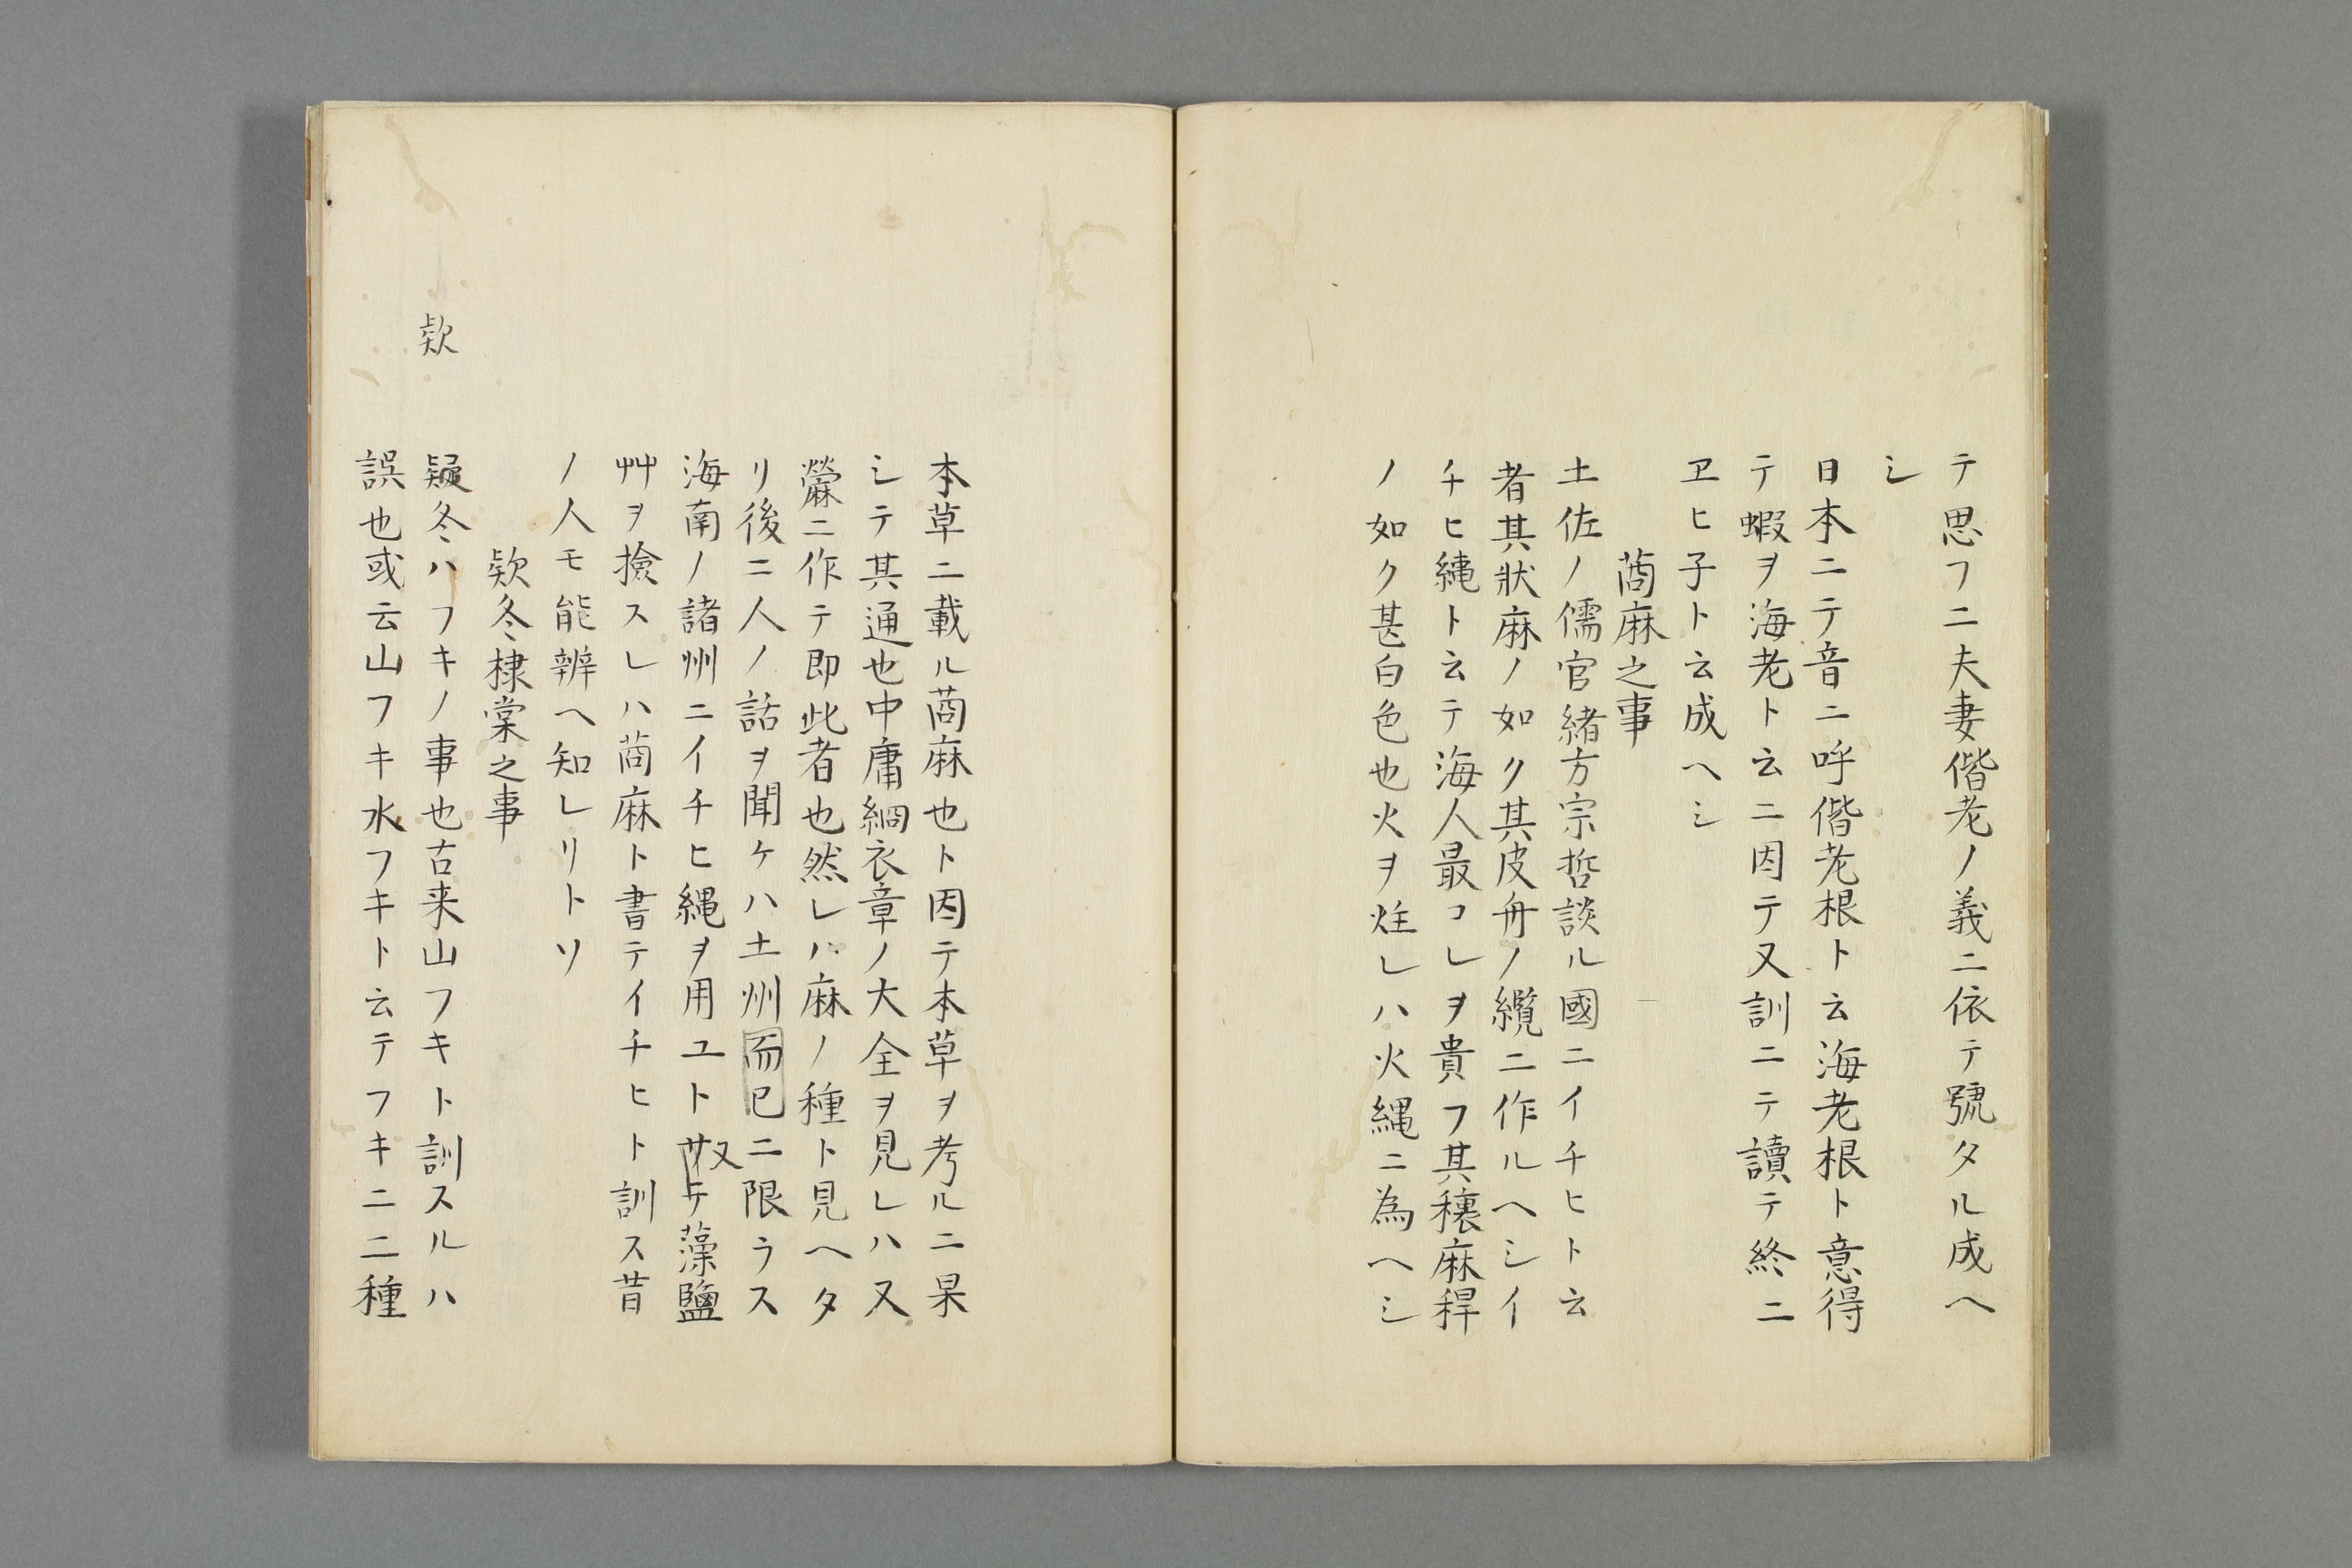 テ思フニ夫妻偕老ノ義ニ依テ號タル成ヘ
シ
日本ニテ音ニ呼偕老根ト云海老根ト意得
テ蝦ヲ海老ト云ニ因テ又訓ニテ讀テ終ニ
ヱヒ子ト云成ヘシ
莔麻之事
土佐ノ儒官緒方宗哲談ル國ニイチヒト云
者其狀麻ノ如ク其皮舟ノ纜ニ作ルヘシイ
チヒ縄ト云テ海人最コレヲ貴フ其穰麻稈
ノ如ク甚白色也火ヲ炷レハ火縄ニ為ヘシ
本草ニ載ル莔麻也ト因テ本草ヲ考ルニ果
シテ其通也中庸絅衣章ノ大全ヲ見レハ又
䔛ニ作テ即此者也然レハ麻ノ種ト見ヘタ
リ後ニ人ノ話ヲ聞ケハ土州而已ニ限ラス
海南ノ諸州ニイチヒ縄ヲ用ユト又サテ藻鹽
艸ヲ撿スレハ莔麻ト書テイチヒト訓ス昔
ノ人モ能辨ヘ知レリトソ
欵冬棣棠之事
欵
疑冬ハフキノ事也古来山フキト訓スルハ
誤也或云山フキ水フキト云テフキニ二種